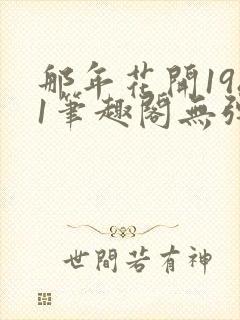 那年花開19
1筆趣閣無彈
世間若有神